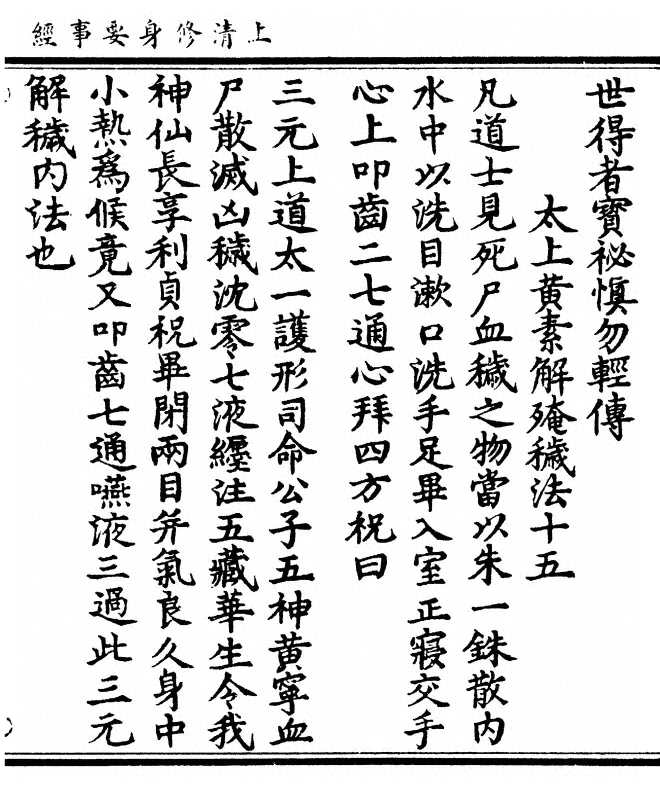 上清修身要事經
世得者寶祕慎勿輕傳
太上黃素解殗穢法十五
凡道士見死尸血穢之物當以朱一銖散內
水中以洗目漱口洗手足畢入室正寢交手
心上叩齒二七通心拜四方祝曰
三元上道太一護形司命公子五神黃寧血
尸散滅凶穢沈零七液纏注五藏華生令我
神仙長享利貞祝畢閉兩目并氣良久身中
小熱爲候竟又叩齒七通嚥液三過此三元
解穢內法也